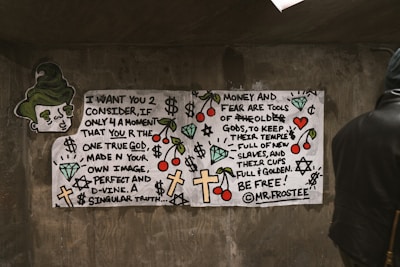 I WANT YOU 2
CONSIDER, IF
ONLY 4 A MOMENT
THAT YOU R THE
ONE TRUE GOD,
MADE N YOUR
OWN IMAGE,
PERFECT AND
D-VINE. A
SINGULAR TRUTH...
MONEY AND
FEAR ARE TOOLS
OF THE OLDER
GODS, TO KEEP
THEIR TEMPLE
FULL OF NEW
SLAVES, AND
THEIR CUPS
FULL & GOLDEN.
BE FREE!
© MR. FROSTEE